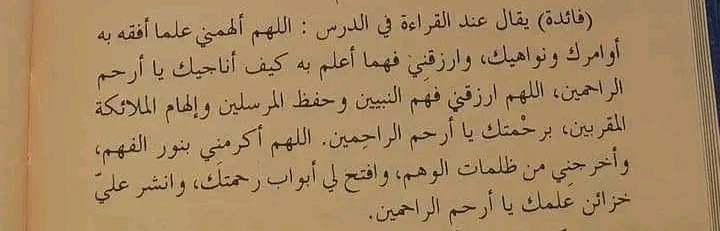 (فائدة) يقال عند القراءة في الدرس : اللهم ألهمني علما أفقه به
أوامرك ونواهيك، وارزقنِي فهما أعلم به كيف أناجيك يا أرحم
الراحمين، اللهم ارزقني فهم النبيين وحفظ المرسلين وإلهام الملائكة
المقربين، برحْمتك يا أرحم الراحِمين. اللهم أكرمنِي بنور الفهم،
وأخرجنِي من ظلمات الوهم، وافتح لي أبواب رحمتك، وانشر عليّ
خزائن علمك يا أرحم الراحمين.